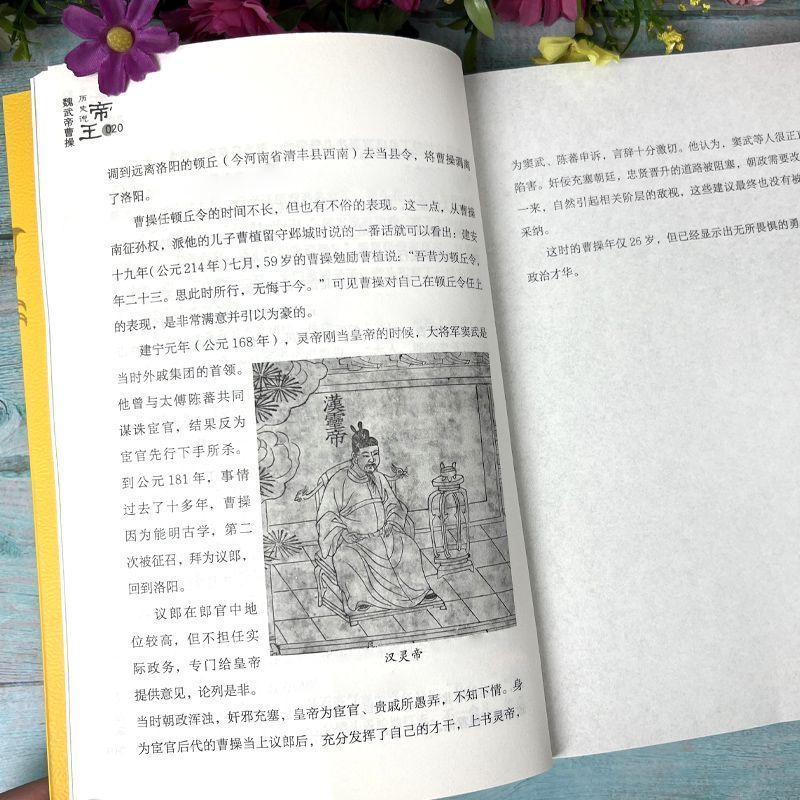 历史说
帝王
魏武帝曹操
020
调到远离洛阳的顿丘（今河南省清丰县西南）去当县令，将曹操调离
了洛阳。
曹操任顿丘令的时间不长，但也有不俗的表现。这一点，从曹操
南征孙权，派他的儿子曹植留守邺城时说的一番话就可以看出：建安
十九年（公元214年）七月，59岁的曹操勉励曹植说：“吾昔为顿丘令，
年二十三。思此时所行，无悔于今。”可见曹操对自己在顿丘令任上
的表现，是非常满意并引以为豪的。
建宁元年（公元168年），灵帝刚当皇帝的时候，大将军窦武是
当时外戚集团的首领。
他曾与太傅陈蕃共同
谋诛宦官，结果反为
宦官先行下手所杀。
到公元181年，事情
过去了十多年，曹操
因为能明古学，第二
次被征召，拜为议郎，
回到洛阳。
漢靈帝
汉灵帝
议郎在郎官中地
位较高，但不担任实
际政务，专门给皇帝
提供意见，论列是非。
当时朝政浑浊，奸邪充塞，皇帝为宦官、贵戚所愚弄，不知下情。身
为宦官后代的曹操当上议郎后，充分发挥了自己的才干，上书灵帝，
为窦武、陈蕃申诉，言辞十分激切。他认为，窦武等人很正
陷害。奸佞充塞朝廷，忠贤晋升的道路被阻塞，朝政需要改
一来，自然引起相关阶层的敌视，这些建议最终也没有被
采纳。
这时的曹操年仅26岁，但已经显示出无所畏惧的勇
政治才华。